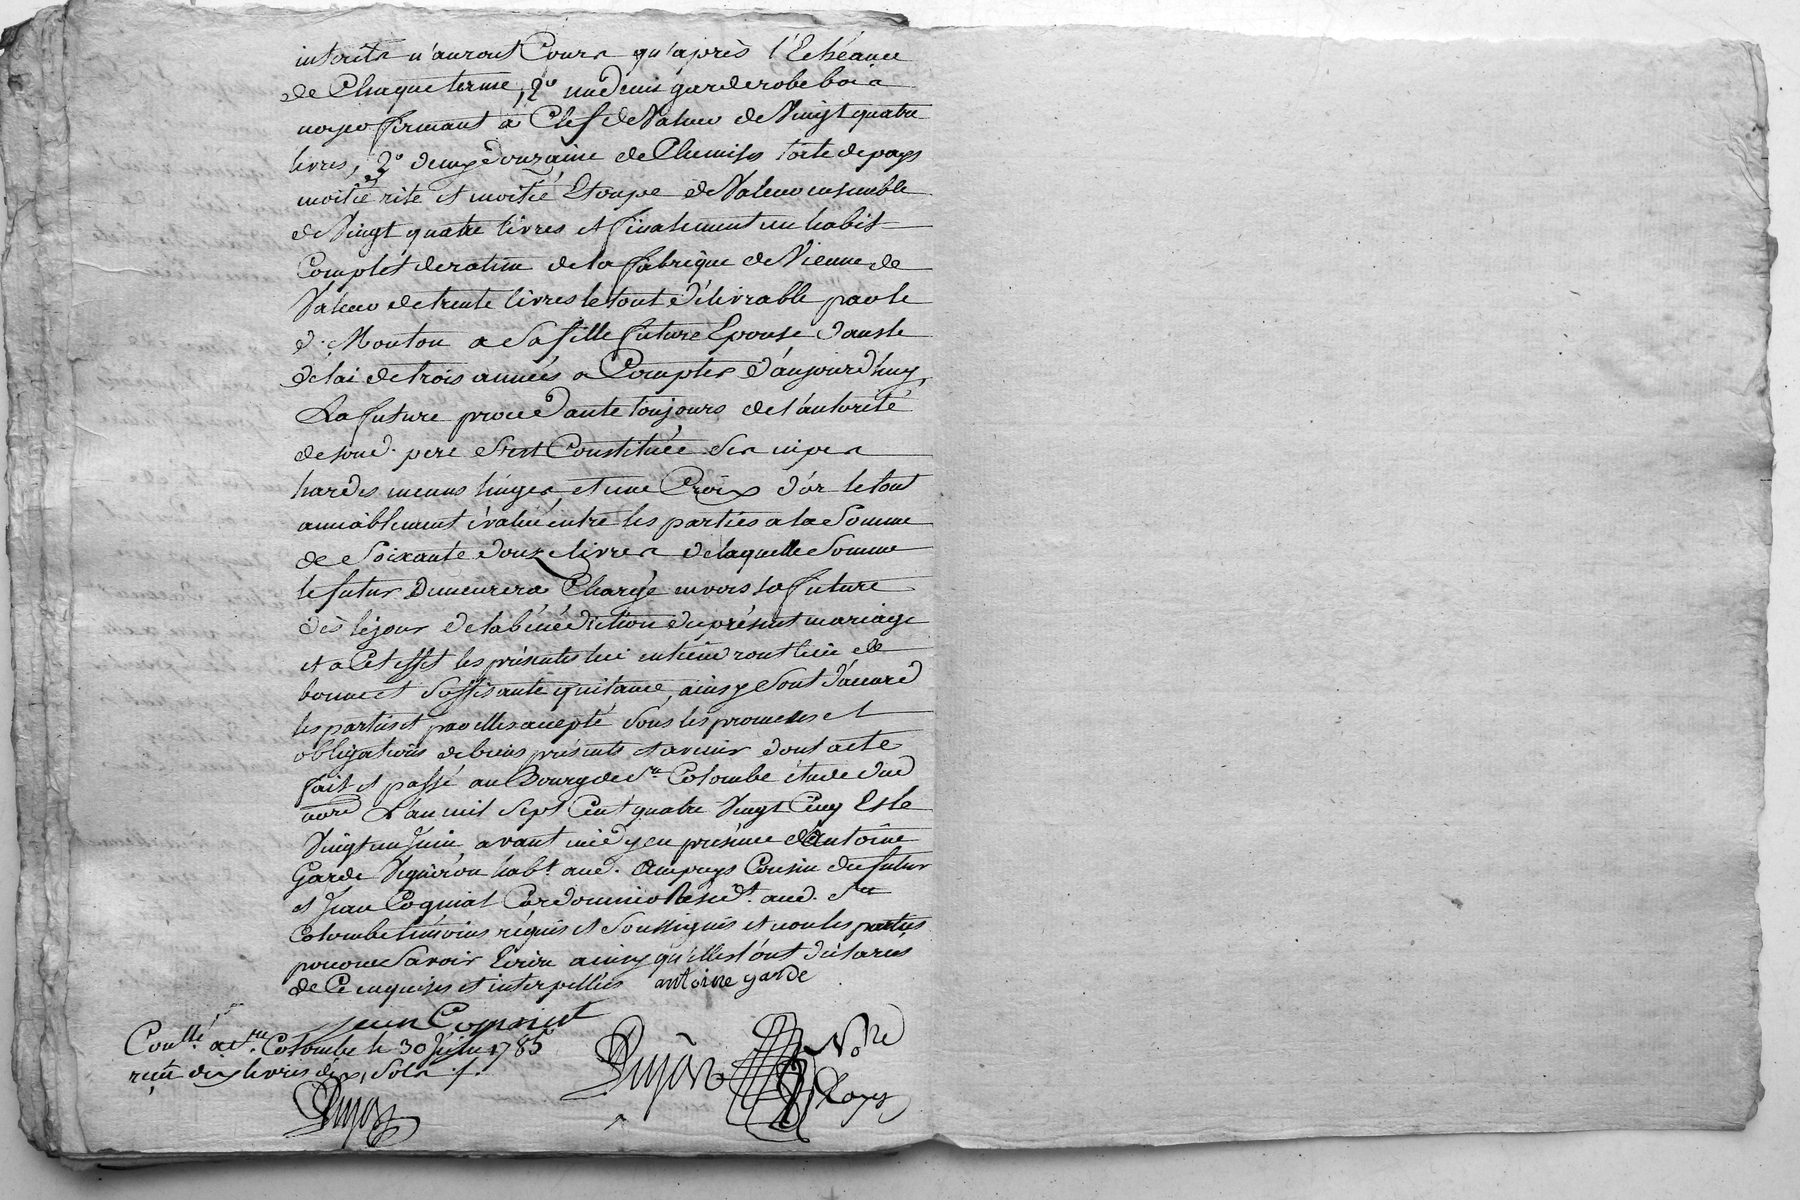 intérêts n'auront Cours qu'après l'Echéance
de Chaque terme, 2º un demi garderobe bois
noyer fermant à Clef de Valeur de Vingt quatre
livres, 3º deux douzaine de Chemises toile de pays
moitié rite et moitié Etoupe de Valeur ensemble
de Vingt quatre livres et finalement un habit
Complet de ratine de la fabrique de Vienne de
Valeur de trente livres le tout délivrable par le
d. Mouton a Sa fille future Epouse dans le
délai de trois années a Compter d'aujourd'huy,
La future procédante toujours de l'autorité
de sond. pere S'est Constituée Ses nipes
hardes menus linges et une Croix d'or le tout
amiablement évalué entre les parties a la Somme
de Soixante douze livres de laquelle Somme
le futur Demeurera Chargé envers la future
dès le jour de la bénédiction du présent mariage
et a Cet effet les présentes lui en tiendront lieu de
bonne et Suffisante quitance, ainsy Sont d'accord
les parties et par elles accepté Sous les promesses et
obligations de biens présents et avenir dont acte
fait et passé au Bourg de Ste Colombe étude dud
nore L'an mil Sept Cent quatre Vingt Cinq Et le
Vingt un Juin avant midy en présence d'Antoine
Garde Vigneron habt. aud. Ampuys Cousin du futur
et Jean Cogniat Cordonnier Résidt. aud. Ste
Colombe témoins réquis et Soussignés et non les parties
pour ne Savoir Ecrire ainsy qu'elles l'ont déclaré
de Ce enquises et interpellées antoine garde
jean Cogniat
Conllé. a Ste. Colombe le 30 Juin 1785
reçu dix livres dix Sols
Dujon Nore Royy
Dujon